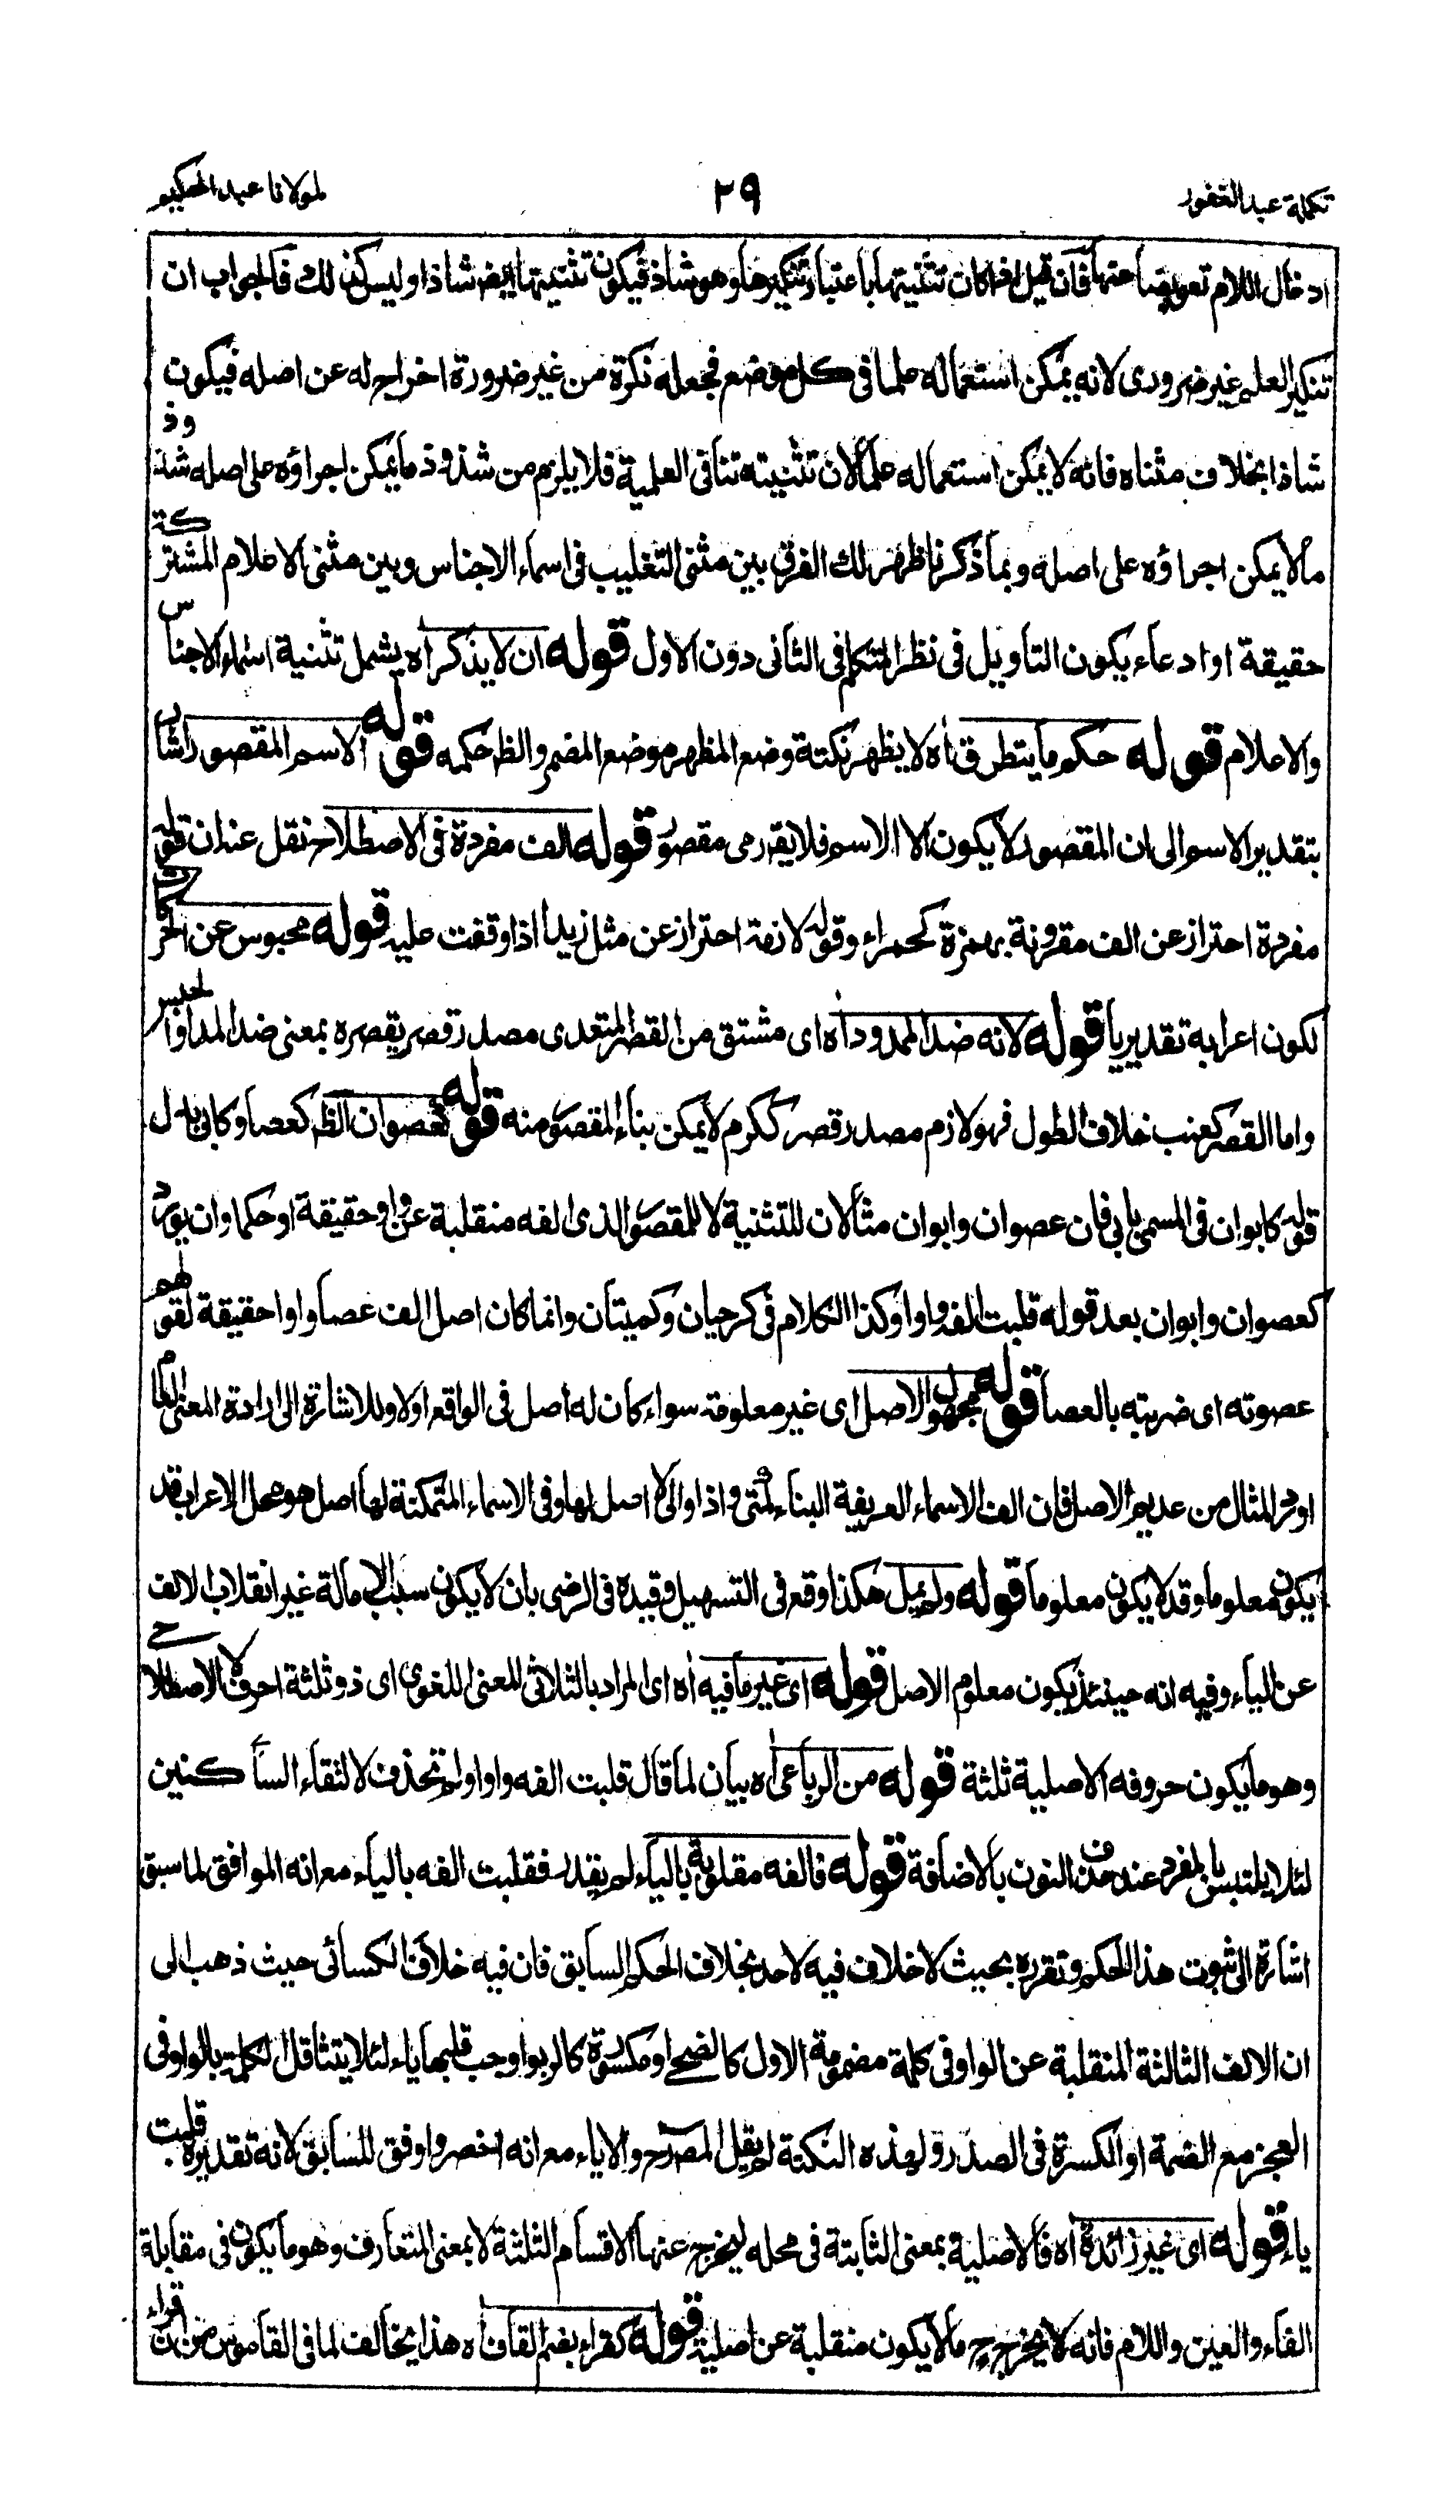 تكملة عبدالغفور ٢٩ لمولانا عبدالحكيم
ادخال اللام تعويضا عنها فان قيل اذا كان تثنيتها باعتبار تنكيرها وهو شاذ فيكون تثنيتها ايضا شاذا وليس كذلك فالجواب ان
تنكير العلم غير ضرورى لانه يمكن استعماله علما فى كل موضع فجعله نكرة من غير ضرورة اخراج له عن اصله فيكون
شاذا بخلاف مثناه فانه لا يمكن استعماله علما لان تثنيته تنافى العلمية فلا يلزم من شذوذ ما يمكن اجراؤه على اصله شذوذ
ما لا يمكن اجراؤه على اصله وبما ذكرنا ظهر لك الفرق بين مثنى التغليب فى اسماء الاجناس وبين مثنى الاعلام المشتركة
حقيقة او ادعاء يكون التاويل فى نظر المتكلم فى الثانى دون الاول قوله ان لا يذكر اه يشمل تثنية اسماء الاجناس
والاعلام قوله حكم ما يتطرق اه لا يظهر نكتة وضع المظهر موضع المضمر والظ حكمه قوله الاسم المقصور اشار
بتقدير الاسم الى ان المقصور لا يكون الا الاسم فلا يقه رمى مقصور قوله الف مفردة فى الاصطلاح نقل عنه ان قوله
مفردة احتراز عن الف مقرونة بهمزة كحمراء وقوله لازمة احتراز عن مثل زيدا اذا وقفت عليه قوله محبوس عن الحركات
لكون اعرابه تقديريا قوله لانه ضد الممدود اه اى مشتق من القصر المتعدى مصدر قصر يقصره بمعنى ضد المد او الحبس
واما القصر كعنب خلاف الطول فهو لازم مصدر قصر ككرم لا يمكن بناء المقصور منه قوله كعصوان الظ كعصا وكابى بدل
قوله كابوان فى المسمى بابى فان عصوان وابوان مثالان للتثنية لا للمقصور الذى الفه منقلبة عن واو حقيقة او حكما وان يورد
كعصوان وابوان بعد قوله قلبت الفه واوا وكذا الكلام فى كرحيان وكميتان وانما كان اصل الف عصا واوا حقيقة لقولهم
عصوته اى ضربته بالعصا قوله مجهول الاصل اى غير معلومة سواء كان له اصل فى الواقع او لا وللاشارة الى ارادة المعنى العام
اورد المثال من عديم الاصل فان الف الاسماء العريقة البناء كمتى واذا والى لا اصل لها وفى الاسماء المتمكنة لها اصل هو محل الاعراب قد
يكون معلوما وقد لا يكون معلوما قوله ولم يمل هكذا وقع فى التسهيل وقيده فى الرضى بان لا يكون سبب الامالة غير انقلاب الالف
عن الياء وفيه انه حينئذ يكون معلوم الاصل قوله اى غير ما فيه اه اى المراد بالثلاثى المعنى اللغوى اى ذو ثلثة احرف لا الاصطلاحى
وهو ما يكون حروفه الاصلية ثلثة قوله من الرباعى اه بيان لما قال قلبت الفه واوا ولم تحذف لالتقاء الساكنين
لئلا يلتبس بالمفرد عند حذف النون بالاضافة قوله فالفه مقلوبة بالياء لم يقدر فقلبت الفه بالياء مع انه الموافق لما سبق
اشارة الى ثبوت هذا الحكم وتقرره بحيث لا خلاف فيه لاحد بخلاف الحكم السابق فان فيه خلاف الكسائى حيث ذهب الى
ان الالف الثالثة المنقلبة عن الواو فى كلمة مضمومة الاول كالضحى او مكسورة كالربوا وجب قلبها ياء لئلا يتثاقل الكلمة بالواو فى
العجز مع الضمة او الكسرة فى الصدر ولهذه النكتة لم يقل المصرح والا ياء مع انه اخصر واوفق للسابق لانه تقديره قلبت
ياء قوله اى غير زائدة اه فالاصلية بمعنى الثابتة فى محله ليخرج عنها الاقسام الثلثة لا بمعنى المتعارف وهو ما يكون فى مقابلة
الفاء والعين واللام فانه لا يخرج ح ما لا يكون منقلبة عن اصلية قوله كقراء بضم القاف اه هذا يخالف لما فى القاموس من ان قراء